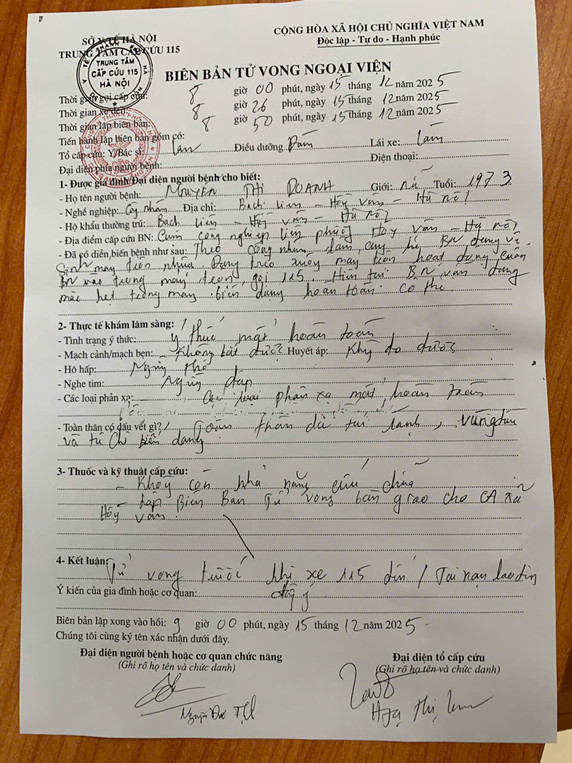 SỞ Y TẾ HÀ NỘI
TRUNG TÂM CẤP CỨU 115
TRUNG TÂM
CẤP CỨU 115
HÀ NỘI
CỘNG HÒA XÃ HỘI CHỦ NGHĨA VIỆT NAM
Độc lập - Tự do - Hạnh phúc
BIÊN BẢN TỬ VONG NGOẠI VIỆN
Thời gian gọi cấp cứu: 8 giờ 00 phút, ngày 15 tháng 12 năm 2025
Thời gian xe đến: 8 giờ 26 phút, ngày 15 12 năm 2025
Thời gian lập biên bản: 8 giờ 50 phút, ngày 15 12 năm 2025
Tiến hành lập biên bản gồm có:
Tổ cấp cứu: Y, Bác sĩ: Điều dưỡng Lái xe:
Đại diện phía người bệnh: Điện thoại:
1- Được gia đình/Đại diện người bệnh cho biết:
- Họ tên người bệnh: NGUYEN THI DOANH Giới: nữ Tuổi: 1973
- Nghề nghiệp: Công nhân Địa chỉ: Bạch liên - Hội vân - Hà Nội
- Hộ khẩu thường trú: Bạch liên - vân - Hà Nội
- Địa điểm cấp cứu BN: Cụm công nghiệp liên phương vân - Hà Nội
- Đã có diễn biến như sau: Theo công nhân làm cùng BN đang vệ
sinh máy Đang máy hoạt động cuốn
BN vào trong máy gọi 115. Hiện tại BN vẫn đang
mắc kẹt trong máy biến dạng hoàn toàn cơ thể.
2- Thực tế khám lâm sàng:
- Tình trạng ý thức: Ý thức mất hoàn toàn
- Mạch cảnh/mạch bẹn: Không bắt được Huyết áp: Không đo được
- Hô hấp: Ngừng thở
- Nghe tim: Ngừng đập
- Các loại phản xạ: Các loại phản xạ mất hoàn toàn
- Toàn thân có dấu vết gì? Toàn thân da tái lạnh,
và tứ chi biến dạng
3- Thuốc và kỹ thuật cấp cứu:
- Không còn khả năng cứu chữa
- Lập Biên Bản Tử vong bàn giao cho CA xã
vân
4- Kết luận:
Tử vong trước khi xe 115 đến / Tai nạn lao động
Ý kiến của gia đình hoặc cơ quan:
Biên bản lập xong vào hồi: 9 giờ 00 phút, ngày 15 12 năm 2025
Chúng tôi cùng ký tên xác nhận dưới đây.
Đại diện người bệnh hoặc cơ quan chức năng
(Ghi rõ họ tên và chức danh)
Đại diện tổ cấp cứu
(Ghi rõ họ tên và chức danh)